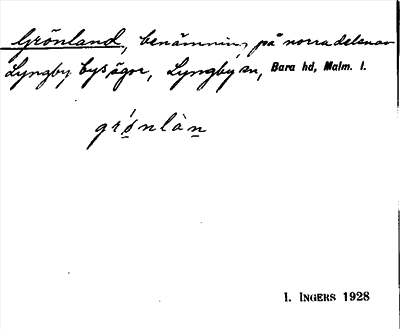 Grönland, benämning på norra delen av
Lyngby bys ägor, Lyngby sn, Bara hd, Malm. l.
grǿnlàn
I. INGERS 1928